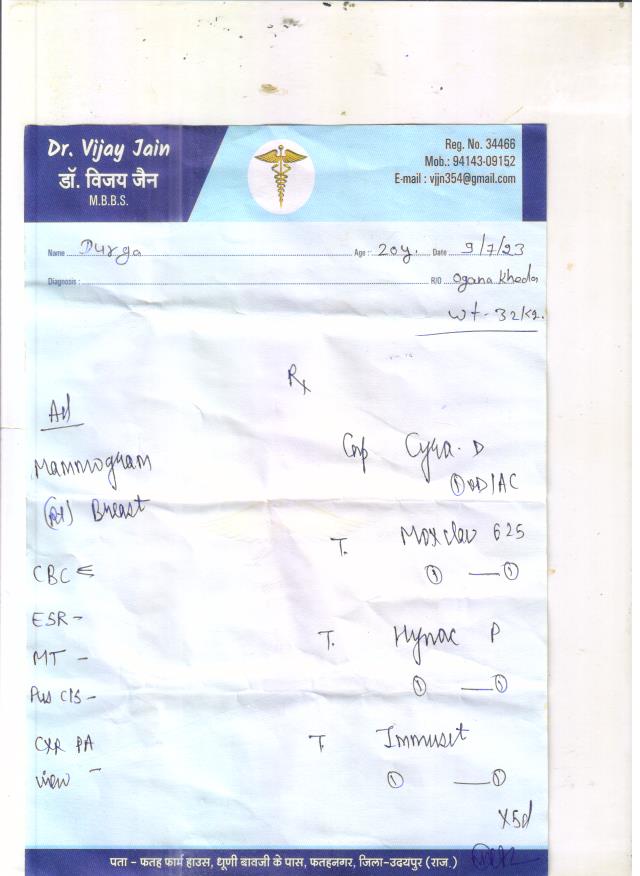 Dr. Vijay Jain
डॉ. विजय जैन
M.B.B.S.
Reg. No. 34466
Mob.: 94143-09152
E-mail : vjjn354@gmail.com
Name Durga Age : 20y. Date 9/7/23
Diagnosis : R/O Ogana Kheda
Wt - 32kg.
Rx
Ad
Mammogram
(Rt) Breast
CBC
ESR -
MT -
Pus C/S -
CXR PA
view -
Cap Cyra. D
① OD/AC
T. Moxclav 625
① — ①
T. Hynac P
① — ①
T. Immuset
① — ①
x5d
पता - फतह फार्म हाउस, धूणी बावजी के पास, फतहनगर, जिला-उदयपुर (राज.)